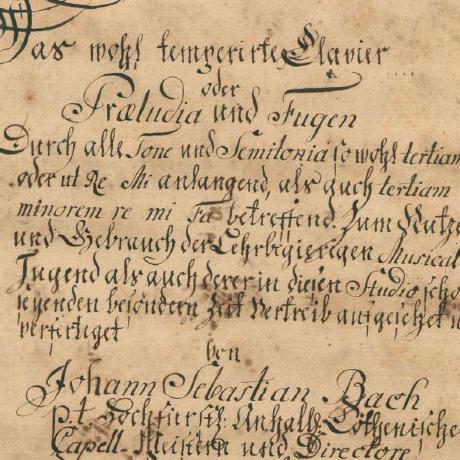 Das wohl temperirte Clavier
oder
Præludia und Fugen
Durch alle Tone und Semitonia so wohl tertiam
oder ut Re Mi anlangend, als auch tertiam
minorem re mi Fa betreffend. Zum Nutzen
und Gebrauch der Lehrbegierigen Musical
Jugend als auch derer in diesen Studio scho
seyenden besondern Zeit Vertreib aufgesetzet u
verfertiget
von
Johann Sebastian Bach
p. t. Hochfürstl. Anhalt. Cöthenische
Capell-Meistern und Directore